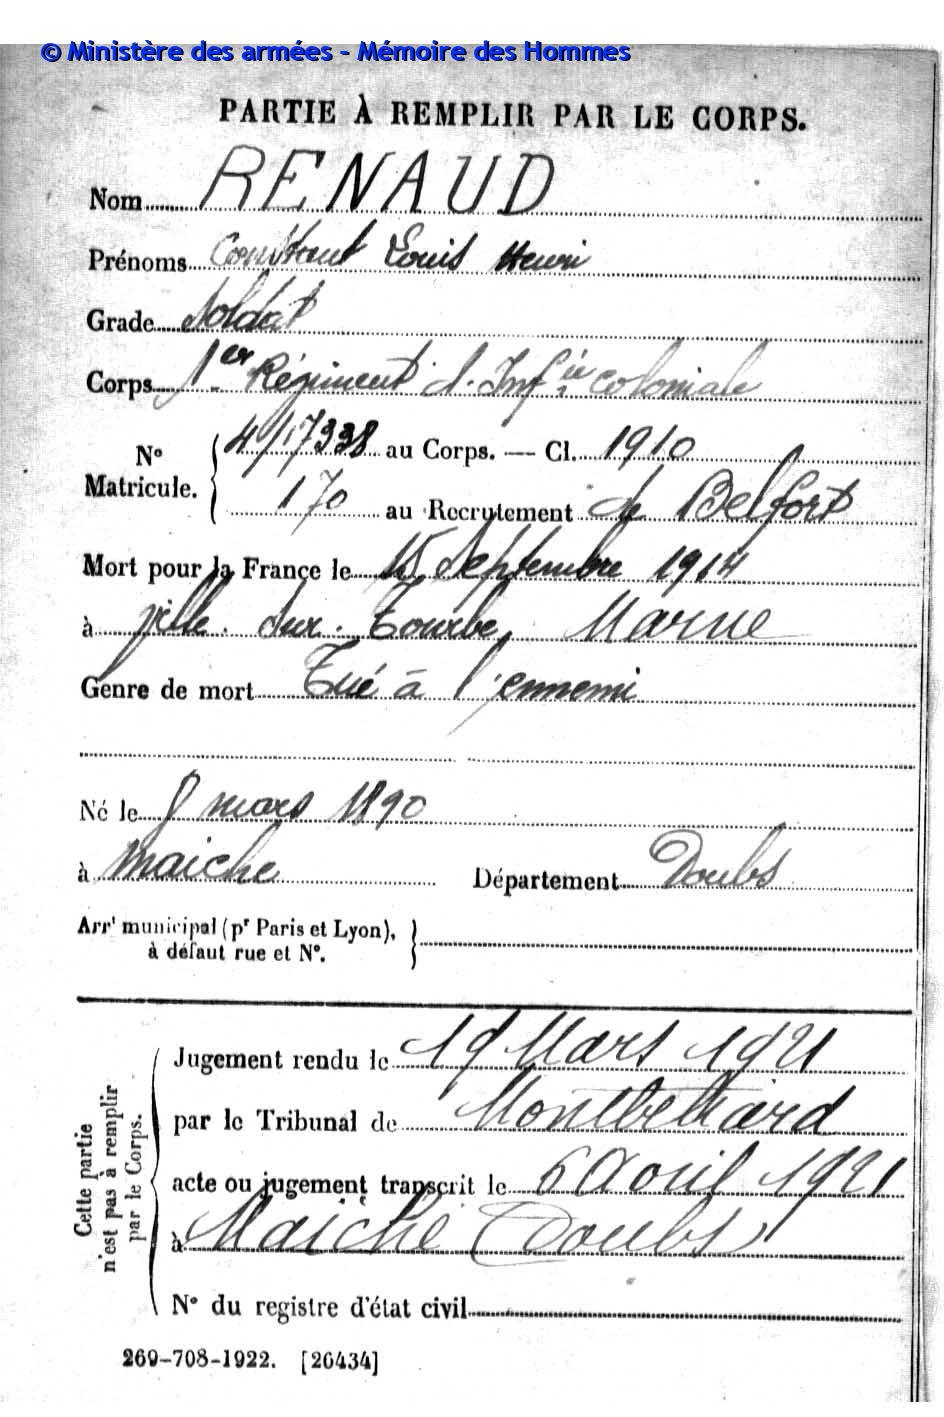 © Ministère des armées - Mémoire des Hommes
PARTIE À REMPLIR PAR LE CORPS.
Nom RENAUD
Prénoms Constant Louis Henri
Grade Soldat
Corps 1er Régiment d'Infie coloniale
No Matricule. { 4/17338 au Corps. — Cl. 1910
170 au Recrutement de Belfort
Mort pour la France le 15 Septembre 1914
à ville-sur-Tourbe, Marne
Genre de mort Tué à l'ennemi
Né le 8 mars 1890
à Maiche Département Doubs
Arrt municipal (pr Paris et Lyon), }
à défaut rue et No.
Cette partie
n'est pas à remplir
par le Corps.
Jugement rendu le 19 Mars 1921
par le Tribunal de Montbéliard
acte ou jugement transcrit le 6 Avril 1921
à Maiche Doubs
No du registre d'état civil
269-708-1922. [26434]